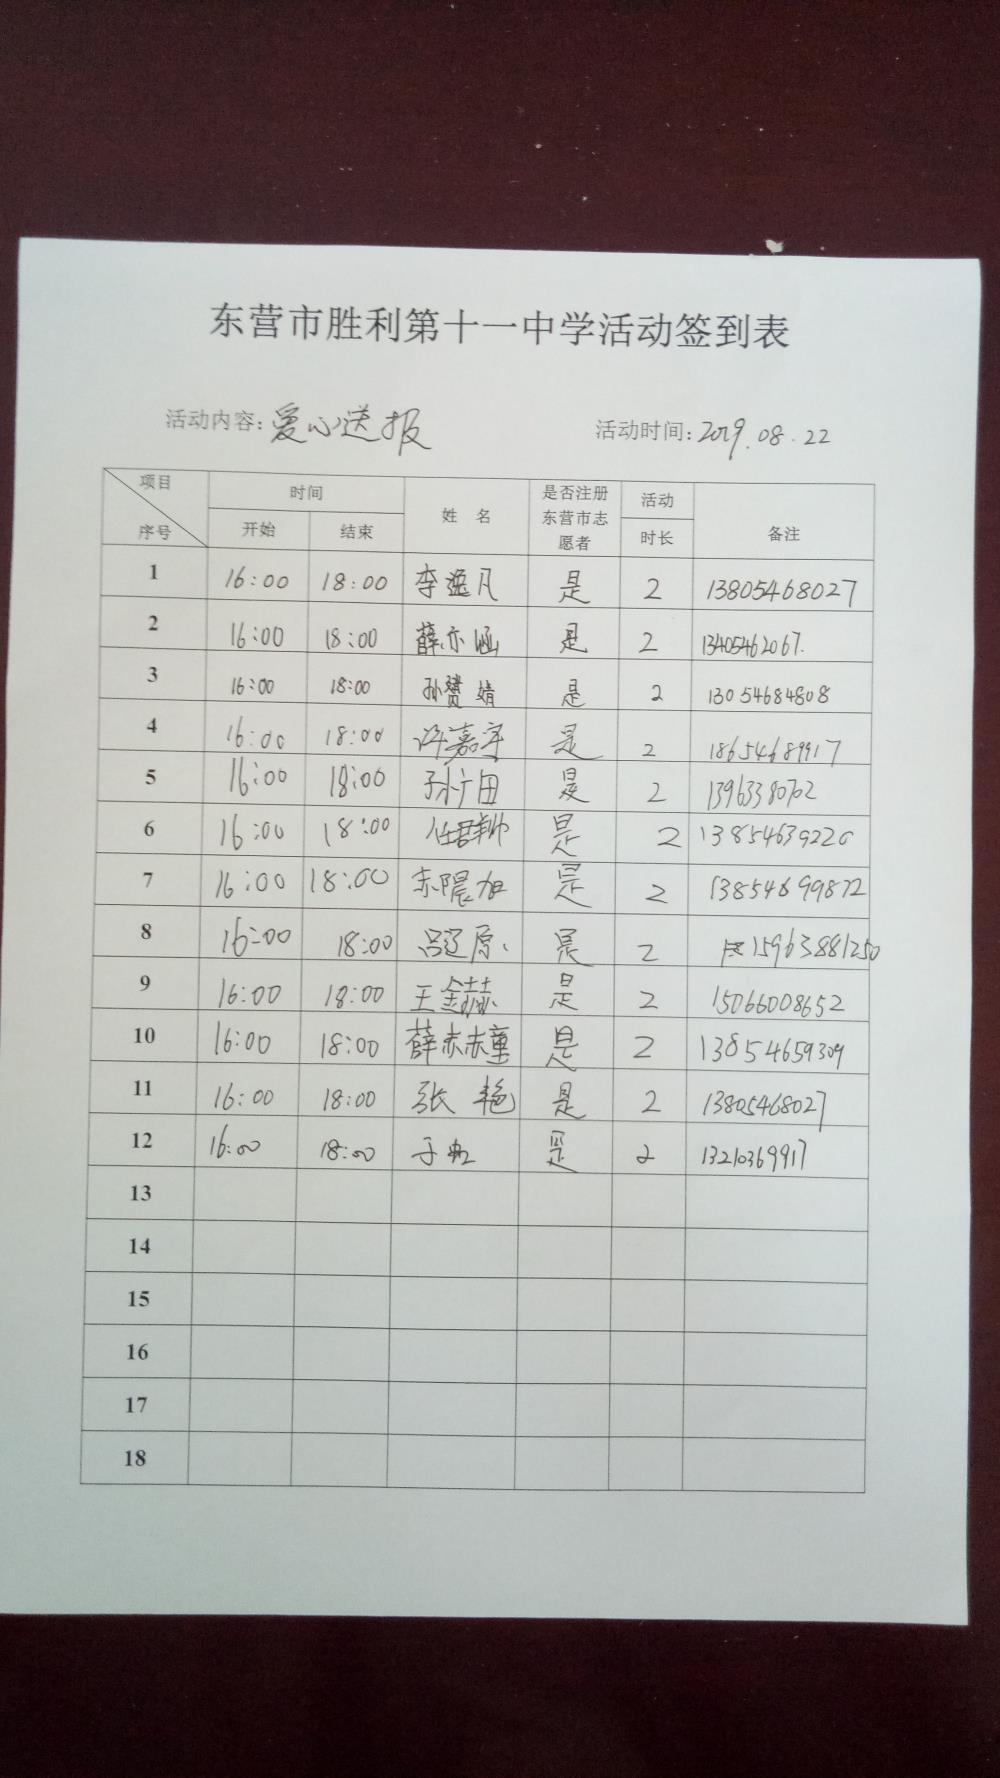 东营市胜利第十一中学活动签到表
活动内容: 爱心送报 活动时间: 2019.08.22
项目 序号 时间 开始 结束 姓 名 是否注册东营市志愿者 活动 时长 备注
1 16:00 18:00 李逸凡 是 2 13805468027
2 16:00 18:00 薛亦涵 是 2 13405462067.
3 16:00 18:00 孙赟婧 是 2 13054684808
4 16:00 18:00 许嘉宇 是 2 18654689917
5 16:00 18:00 孙广田 是 2 13963380702
6 16:00 18:00 任君帅 是 2 13854639220
7 16:00 18:00 是 2 13854699872
8 16:00 18:00 吕辽原 是 2 15963881250
9 16:00 18:00 王鑫赫 是 2 15066008652
10 16:00 18:00 薛 是 2 13854659309
11 16:00 18:00 张艳 是 2 13805468027
12 16:00 18:00 于虹 是 2 13210369917
13
14
15
16
17
18